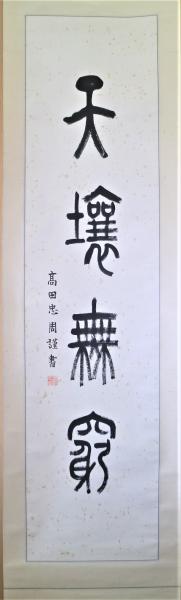 天壤無窮
高田忠周謹書